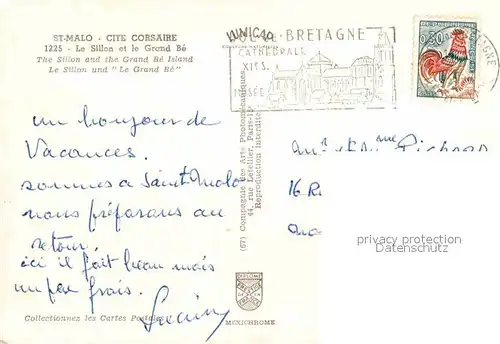 ST-MALO - CITE CORSAIRE
1225 - Le Sillon et le Grand Bé
The Sillon and the Grand Bé Island
Le Sillon und "Le Grand Bé"
BRETAGNE
CATHEDRALE
XII S.
0,30
un bonjour de
Vacances.
sommes a Saint Malo
nous préparons au
retour.
ici il fait beau mais
un peu frais.
Lucien
(67) Compagnie des Arts Photomécaniques
44, rue Letellier, Paris-15
Reproduction Interdite
16 R
privacy protection
Datenschutz
DIPLOME
MEXICHROME
Collectionnez les Cartes Postales